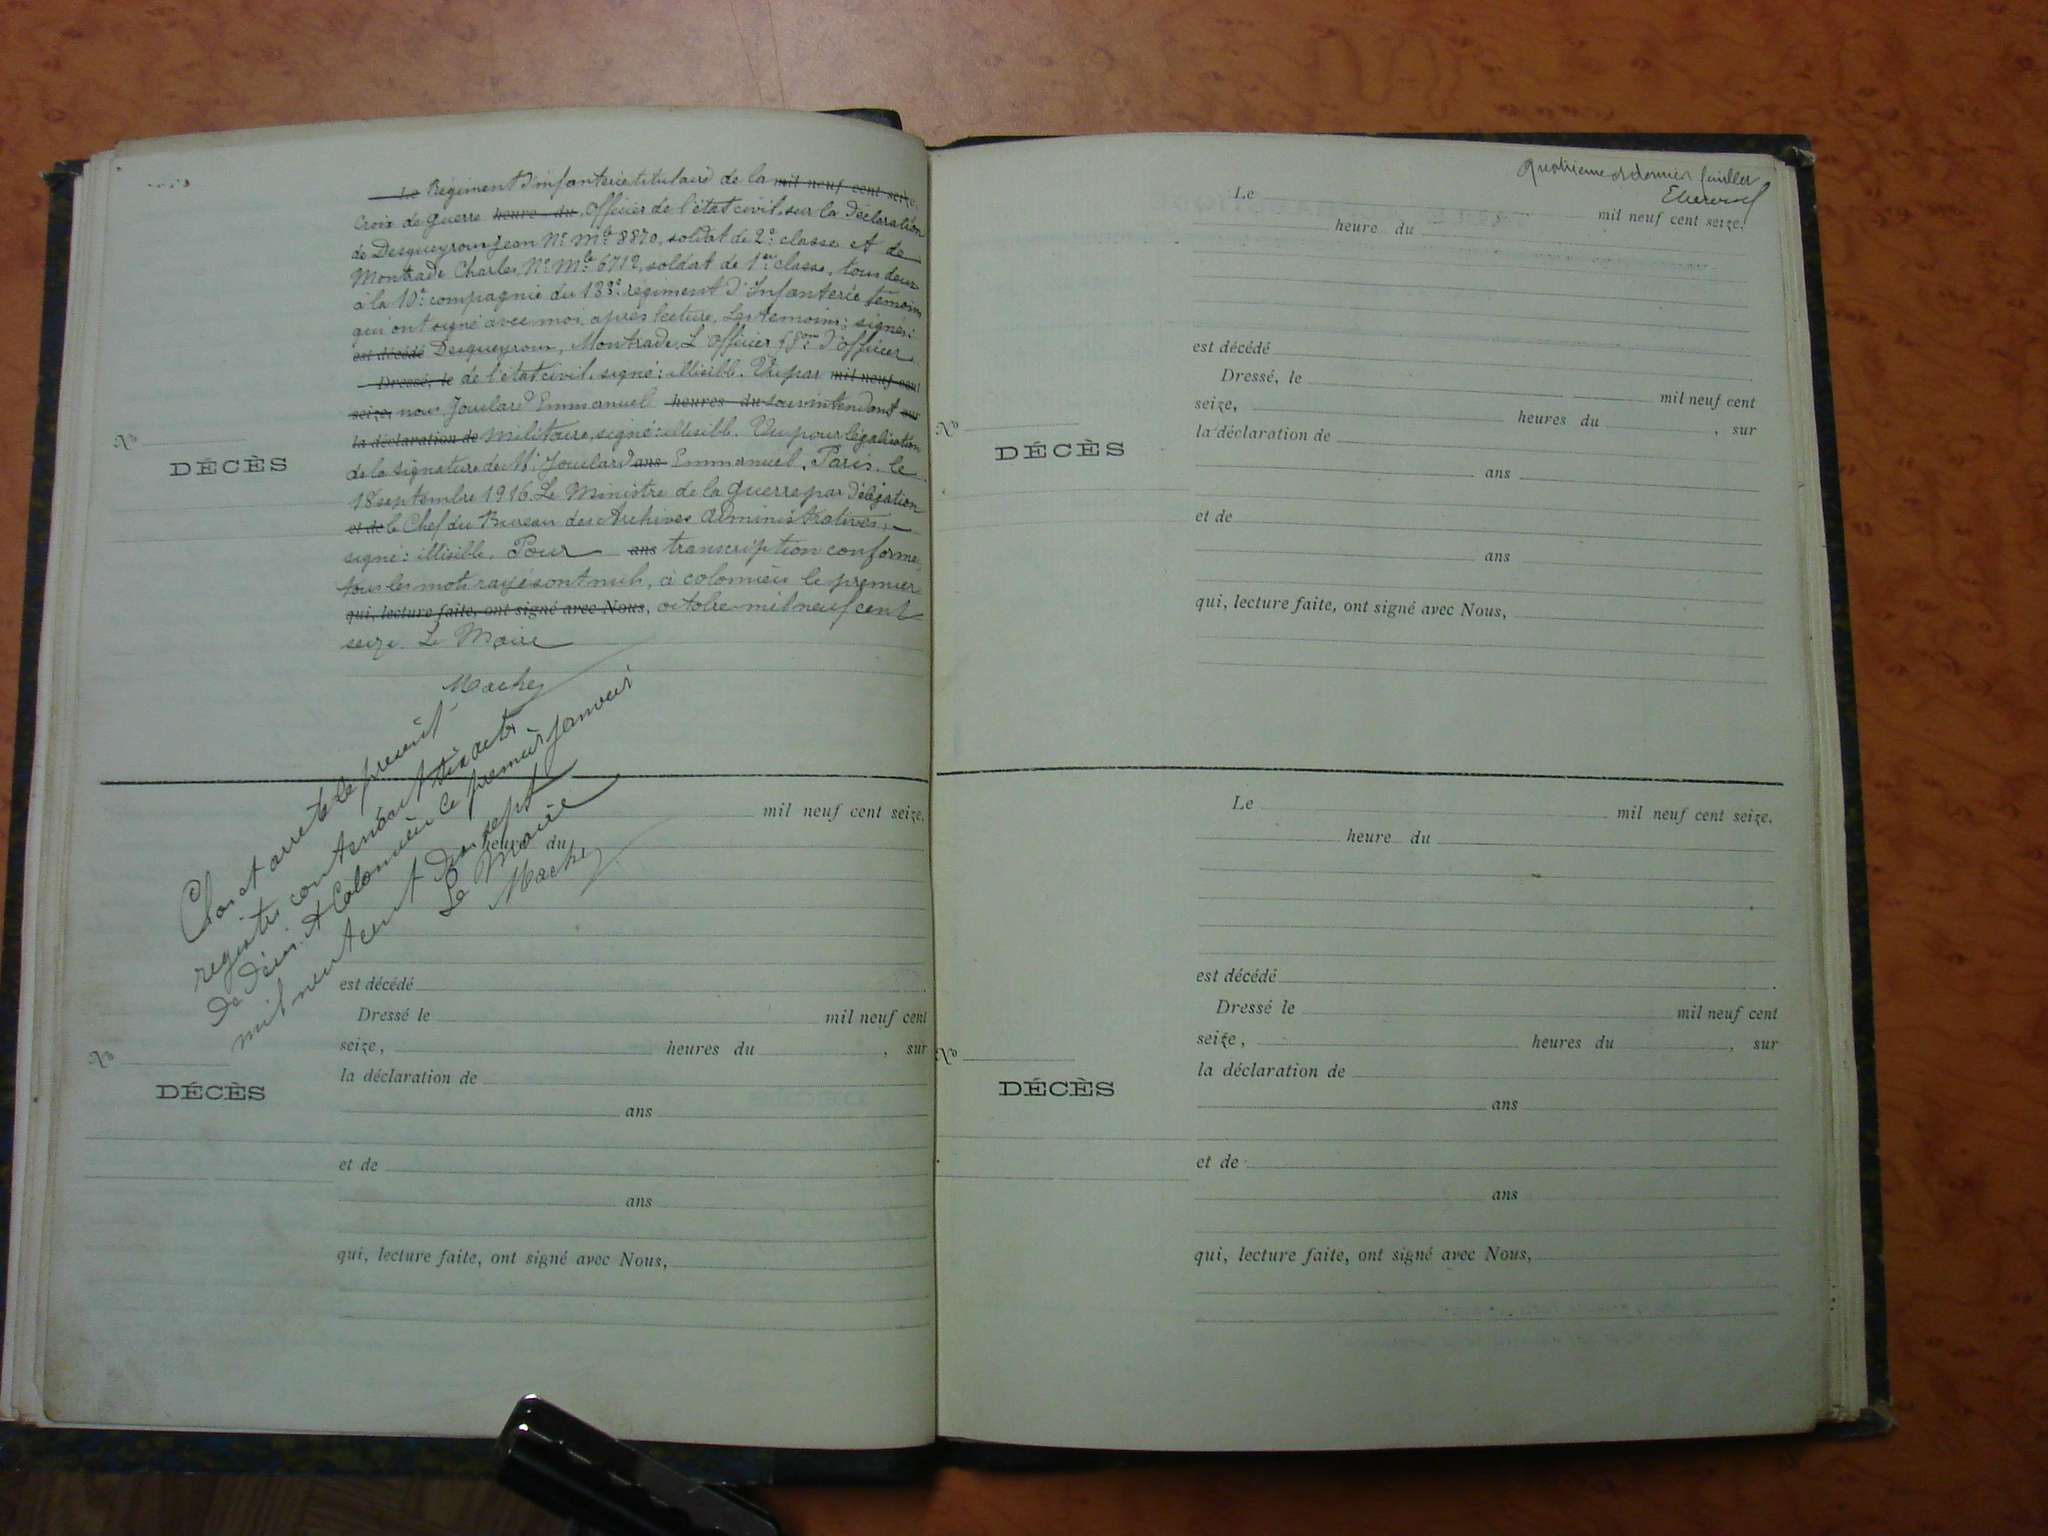 Le Régiment d'infanterie titulaire de la mil neuf cent seize,
Croix de guerre heure du Officier de l'état civil, sur la déclaration
de Desqueyroux Jean No Mle 8870, soldat de 2e classe et de
Montrade Charles, No Mle 6712, soldat de 1ere classe, tous deux
à la 10e compagnie du 133e régiment d'Infanterie témoins
qui ont signé avec moi après lecture. Les témoins: signés:
est décédé Desqueyroux, Montrade. L'officier d'officier
Dressé, le de l'état civil, signé: illisible. Vu par mil neuf cent
seize, nous Jouclard Emmanuel heures du sousintendant sur
la déclaration de militaire, signé: illisible. Vu pour légalisation
de la signature de M. Jouclard ans Emmanuel. Paris, le
18 septembre 1916. Le Ministre de la guerre par délégation
et de le Chef du Bureau des Archives administratives,
signé: illisible. Pour ans transcription conforme,
tous les mots rayés sont nuls, à colomieu le premier
qui, lecture faite, ont signé avec Nous, octobre mil neuf cent
seize. Le Maire
No
DÉCÈS
Clos et arrêté le présent
registre contenant dix actes
de décès. A Colomieu le premier janvier
mil neuf cent dix sept
Le Maire
mil neuf cent seize,
heure du
est décédé
Dressé le mil neuf cent
seize, heures du , sur
la déclaration de
ans
et de
ans
qui, lecture faite, ont signé avec Nous,
No
DÉCÈS
Quatrième et dernier feuillet
Le mil neuf cent seize,
heure du
est décédé
Dressé, le mil neuf cent
seize, heures du , sur
la déclaration de
ans
et de
ans
qui, lecture faite, ont signé avec Nous,
No
DÉCÈS
Le mil neuf cent seize,
heure du
est décédé
Dressé le mil neuf cent
seize, heures du , sur
la déclaration de
ans
et de
ans
qui, lecture faite, ont signé avec Nous,
No
DÉCÈS